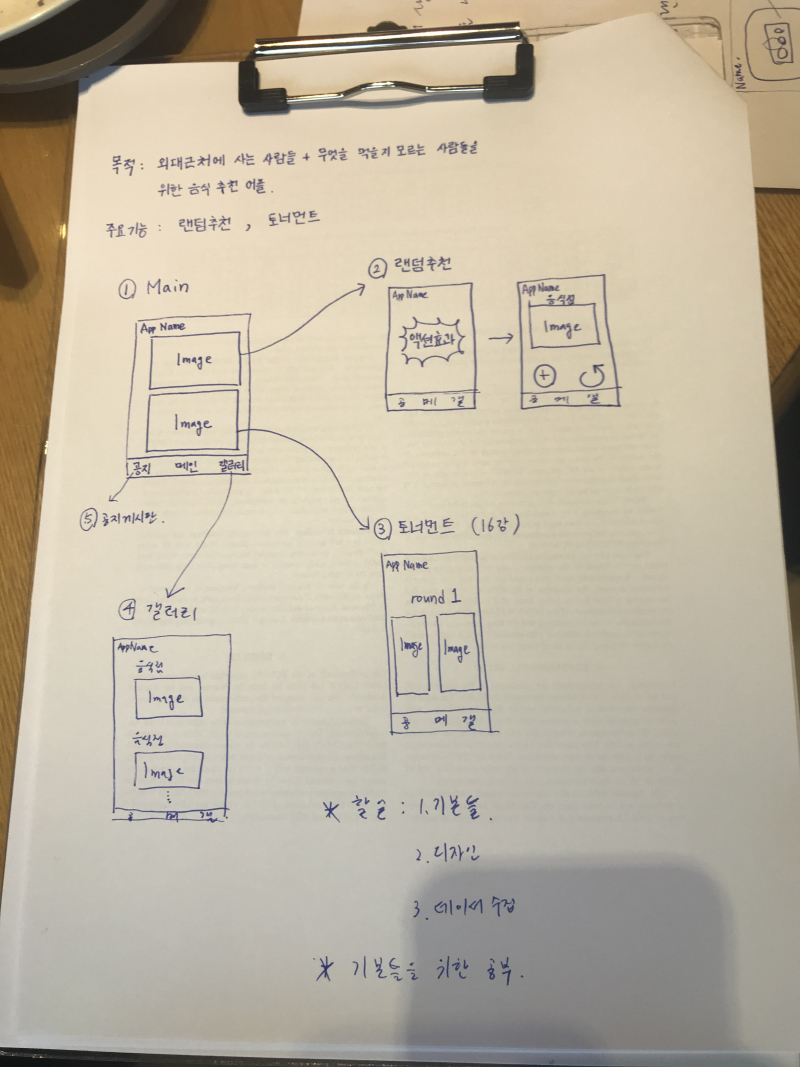 목적 : 외대근처에 사는 사람들 + 무엇을 먹을지 모르는 사람들을
위한 음식 추천 어플.
주요기능 : 랜덤추천 , 토너먼트
① Main
App Name
Image
Image
공지 메인 갤러리
② 랜덤추천
App Name
액션효과
공 메 갤
App Name
음식점
Image
+
공 메 갤
③ 토너먼트 (16강)
App Name
round 1
Image Image
공 메 갤
⑤ 공지게시판.
④ 갤러리
App Name
음식점
Image
음식점
Image
⋮
공 메 갤
* 할일 : 1. 기본틀.
2. 디자인
3. 데이터 수집
* 기본틀을 위한 공부.
Name.